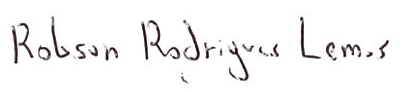 Robson Rodrigues Lemos